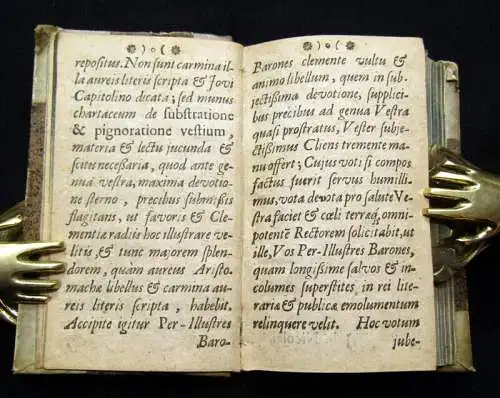 repositus. Non sunt carmina il-
la aureis literis scripta & Jovi
Capitolino dicata; sed munus
chartaceum de substratione
& pignoratione vestium,
materia & lectu jucunda &
scitu necessaria, quod ante ge-
nua vestra, maxima devotio-
ne sterno, precibus submissis
flagitans, ut favoris & Cle-
mentiæ radiis hoc illustrare ve-
litis, & tunc majorem splen-
dorem, quàm aureus Aristo-
machæ libellus & carmina au-
reis literis scripta, habebit.
Accipite igitur Per-Illustres
Baro-
Barones clemente vultu &
animo libellum, quem in sub-
jectissima devotione, supplici-
bus precibus ad genua Vestra
quasi prostratus, Vester subje-
ctissimus Cliens tremente ma-
nu offert; Cujus voti si compos
factus fuerit servus humilli-
mus, vota devota pro salute Ve-
stra faciet & cœli terraq; omni-
potentē Rectorem solicitabit, ut
ille, Vos Per-Illustres Barones,
quam longissime salvos & in-
columes superstites, in rei lite-
rariæ & publicæ emolumentum
relinquere velit. Hoc votum
jube-